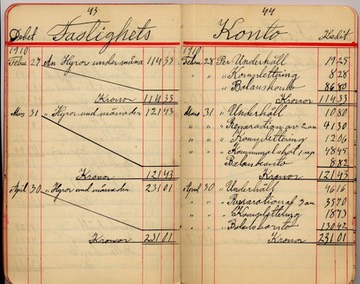 43
Debet Fastighets
1910
Febr 27 An Hyror under måna 114 33
Kronor 114 33
Mars 31 " Hyror und. månaden 121 43
Kronor 121 43
April 30 " Hyror und. månaden 231 01
Kronor 231 01
44
Konto Kredit
1910
Febr 28 Per Underhåll 19 25
" " " Komplettring 8 28
" " " Balanskonto 86 80
Kronor 114 33
Mars 31 " Underhåll 10 80
" " " Reparation av 2an 41 30
" " " Komplettering 12 06
" " " 48 45
" " " Balanskonto 8 82
Kronor 121 43
April 30 " Underhåll 46 16
" " " Reparation af 3an 35 70
" " " Komplettring 18 73
" " " Balanskonto 130 42
Kronor 231 01